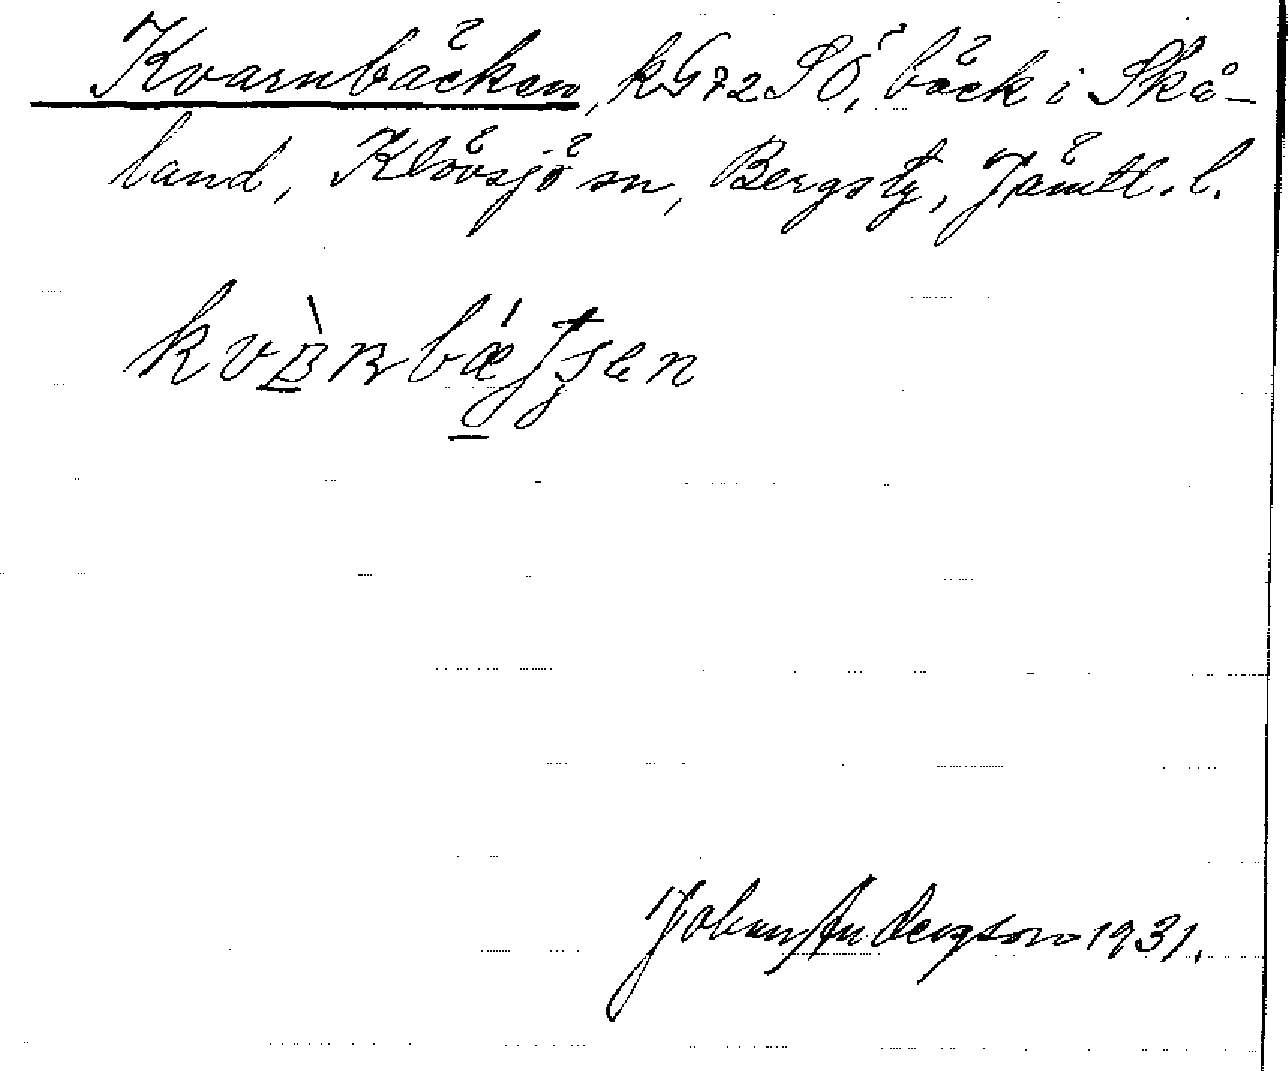 Kvarnbäcken, kG72SÖ, bäck i Skå-
land, Klövsjö sn, Bergs tg, Jämtl. l.
Johan Andersson 1931.